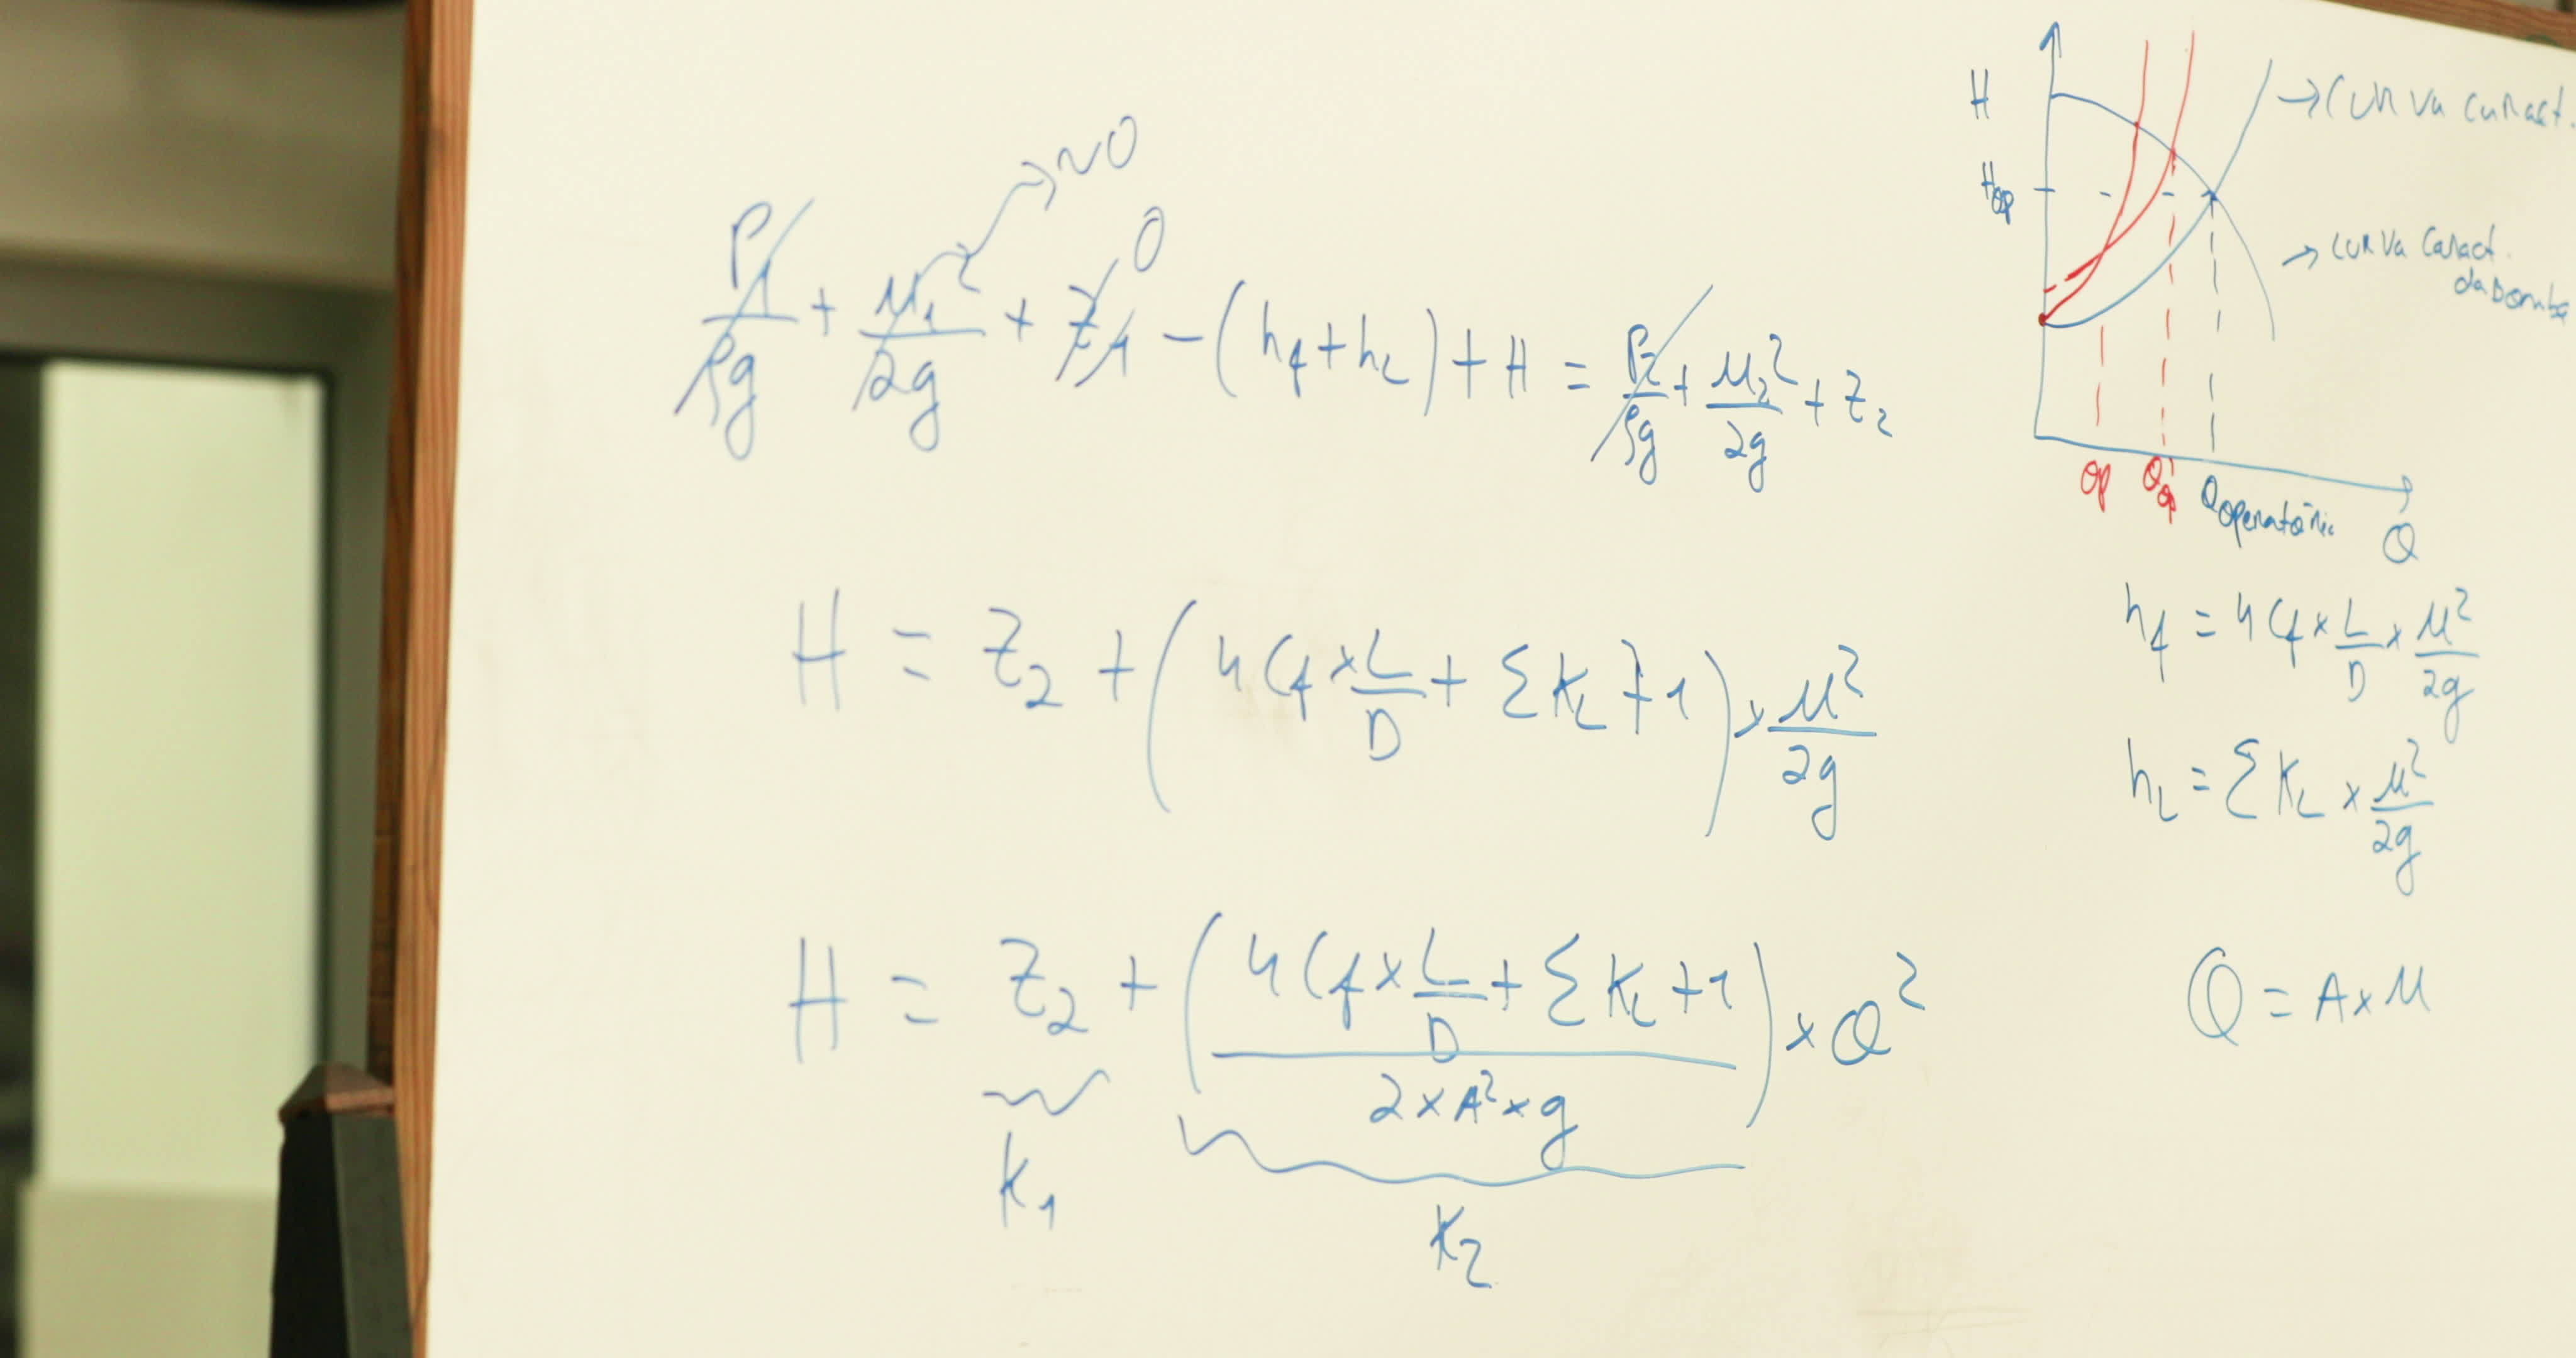 P1/ρg + u₁²/2g → ~0 + z1 0 − (hf + hL) + H = P2/ρg + u₂²/2g + z₂
H = z₂ + (4Cf × L/D + ΣKL + 1) × u²/2g
H = z₂ + ((4Cf × L/D + ΣKL + 1) / (2 × A² × g)) × Q²
K₁
K₂
H
→ Curva caract.
Hop
→ curva caract.
da bomba
op Q'op Qoperatório
Q
hf = 4Cf × L/D × u²/2g
hL = ΣKL × u²/2g
Q = A × u